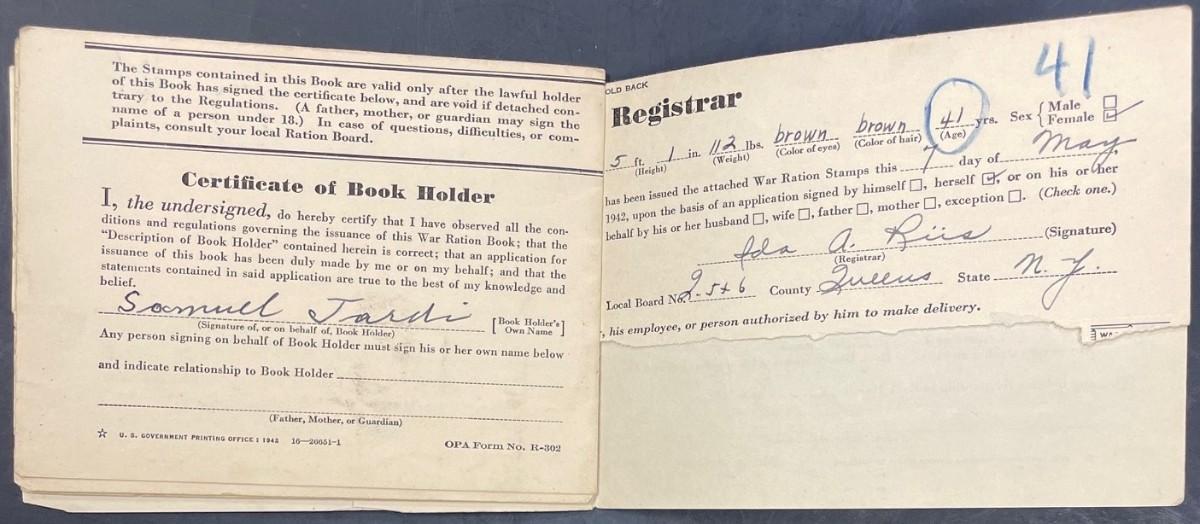 The Stamps contained in this Book are valid only after the lawful holder
of this Book has signed the certificate below, and are void if detached con-
trary to the Regulations. (A father, mother, or guardian may sign the
name of a person under 18.) In case of questions, difficulties, or com-
plaints, consult your local Ration Board.
Certificate of Book Holder
I, the undersigned, do hereby certify that I have observed all the con-
ditions and regulations governing the issuance of this War Ration Book; that the
"Description of Book Holder" contained herein is correct; that an application for
issuance of this book has been duly made by me or on my behalf; and that the
statements contained in said application are true to the best of my knowledge and
belief.
Samuel Tardi [Book Holder's Own Name]
(Signature of, or on behalf of, Book Holder)
Any person signing on behalf of Book Holder must sign his or her own name below
and indicate relationship to Book Holder
(Father, Mother, or Guardian)
☆ U. S. GOVERNMENT PRINTING OFFICE : 1942 16—26651-1 OPA Form No. R-302
OLD BACK
41
Registrar
5 ft. 1 in. 112 lbs. brown brown 41 yrs. Sex { Male Female
(Height) (Weight) (Color of eyes) (Color of hair) (Age)
has been issued the attached War Ration Stamps this 7 day of May,
1942, upon the basis of an application signed by himself □, herself ☑, or on his or her
behalf by his or her husband □, wife □, father □, mother □, exception □. (Check one.)
Ida A. Riis (Signature)
(Registrar)
Local Board No. 2-5+6 County Queens State N. Y.
, his employee, or person authorized by him to make delivery.